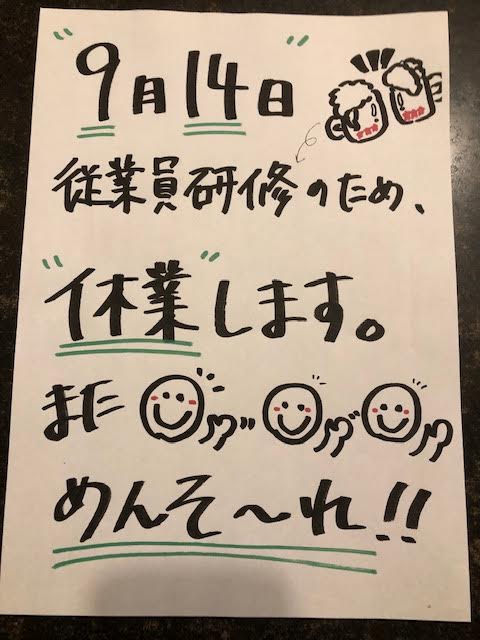 "9月14日"
従業員研修のため、
"休業"します。
また
めんそ〜れ!!